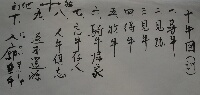 十牛図（一）
一、尋牛
二、見跡
三、見牛
四、得牛
五、牧牛
六、騎牛帰家
七、忘牛存人
八、人牛倶忘
九、返本還源
十、入鄽垂手